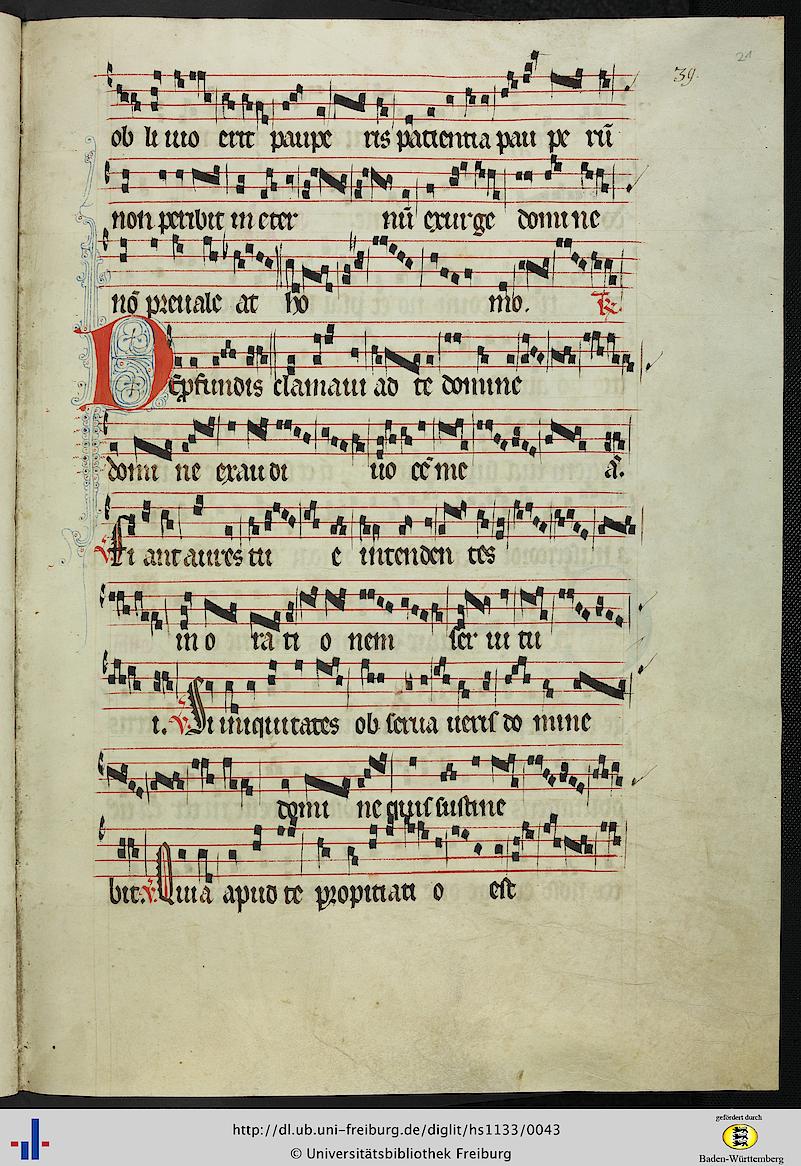 39.
21
ob li uio erit paupe ris patientia pau pe rū
non peribit in eter nū exurge domine
nō preuale at ho mo. Tc.
De ꝓfundis clamaui ad te domine
domi ne exau di uo cē me ā.
V Fi ant aures tu e intenden tes
in o ra ti o nem ser ui tu
i. V Si iniquitates ob serua ueris do mine
domi ne quis sustine
bit. V Quia apud te propitiati o est
http://dl.ub.uni-freiburg.de/diglit/hs1133/0043
© Universitätsbibliothek Freiburg
gefördert durch
Baden-Württemberg